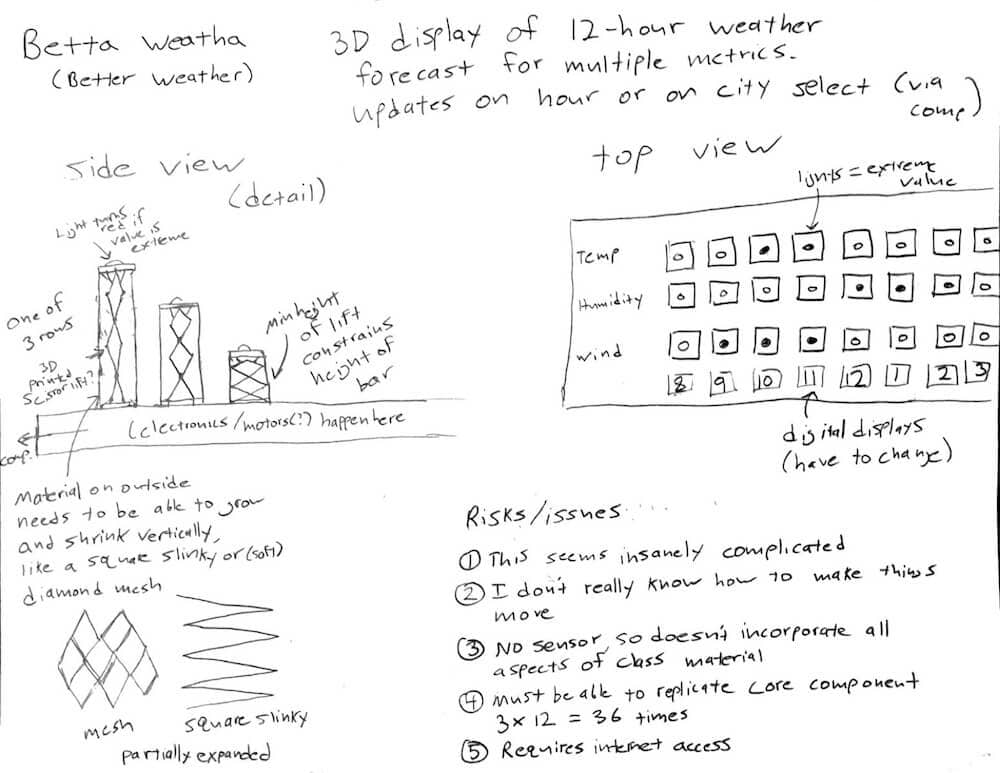 Betta weatha
(Better weather)
3D display of 12-hour weather
forecast for multiple metrics.
updates on hour or on city select (via
comp)
Side view
(detail)
Light turns
red if
value is
extreme
One of
3 rows
3D
printed
scissor lift?
Min height
of lift
constrains
height of
bar
(electronics/motors(?) happen here
comp.
Material on outside
needs to be able to grow
and shrink vertically,
like a square slinky or (soft)
diamond mesh
mesh
square slinky
partially expanded
top view
lights = extreme
value
Temp
Humidity
wind
8 9 10 11 12 1 2 3
digital displays
(have to change)
Risks/issues
① This seems insanely complicated
② I don't really know how to make things
move
③ No sensor, so doesn't incorporate all
aspects of class material
④ Must be able to replicate core component
3 x 12 = 36 times
⑤ Requires internet access